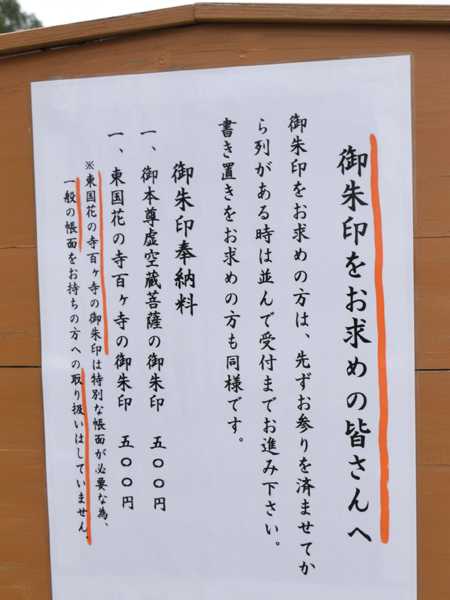 御朱印をお求めの皆さんへ
御朱印をお求めの方は、先ずお参りを済ませてか
ら列がある時は並んで受付までお進み下さい。
書き置きをお求めの方も同様です。
御朱印奉納料
一、御本尊虚空蔵菩薩の御朱印 五〇〇円
一、東国花の寺百ヶ寺の御朱印 五〇〇円
※東国花の寺百ヶ寺の御朱印は特別な帳面が必要な為、
一般の帳面をお持ちの方への取り扱いはしていません。